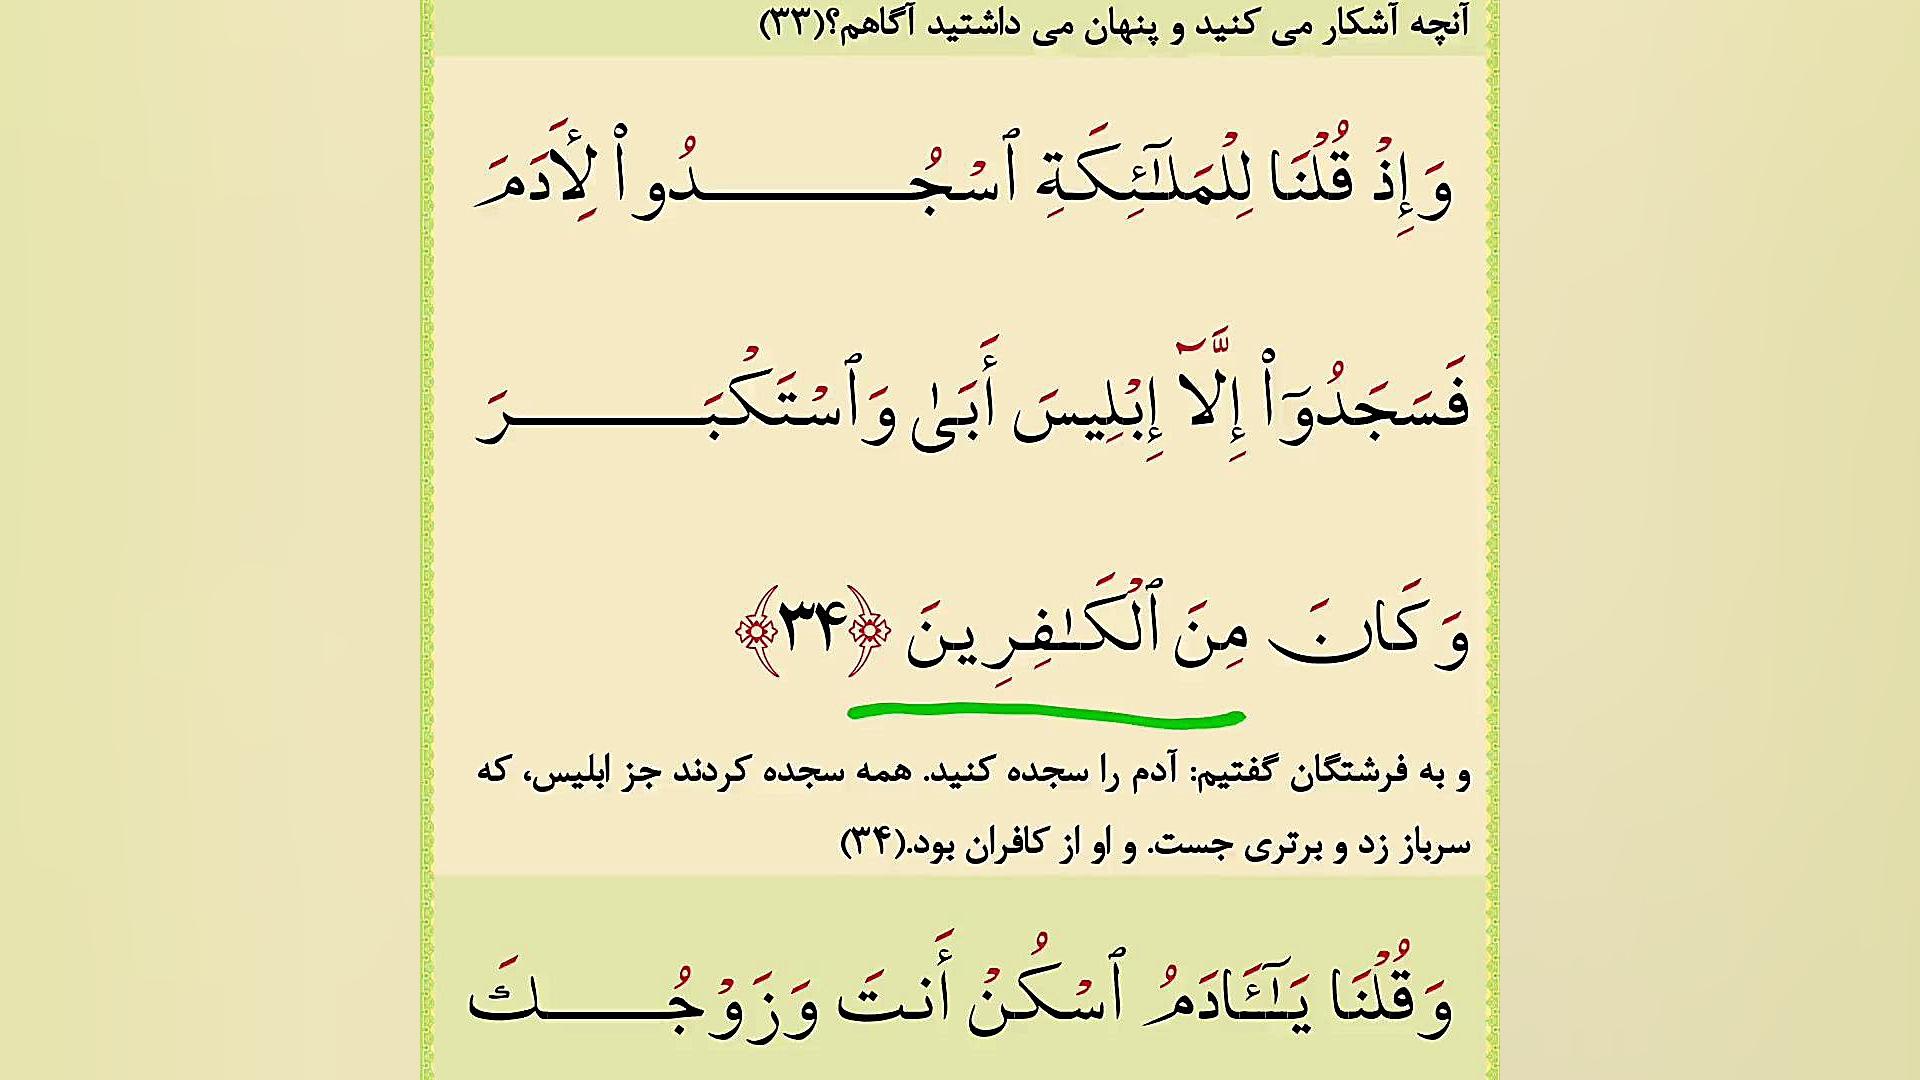 آنچه آشکار می کنید و پنهان می داشتید آگاهم؟(۳۳)
وَإِذْ قُلْنَا لِلْمَلَـٰٓئِكَةِ ٱسْجُـــــــدُوا۟ لِأَدَمَ
فَسَجَدُوٓا۟ إِلَّآ إِبْلِيسَ أَبَىٰ وَٱسْتَكْبَـــــــرَ
وَكَانَ مِنَ ٱلْكَـٰفِرِينَ ﴿۳۴﴾
و به فرشتگان گفتیم: آدم را سجده کنید. همه سجده کردند جز ابلیس، که
سرباز زد و برتری جست. و او از کافران بود.(۳۴)
وَقُلْنَا يَـٰٓـَٔادَمُ ٱسْكُنْ أَنتَ وَزَوْجُـــــكَ